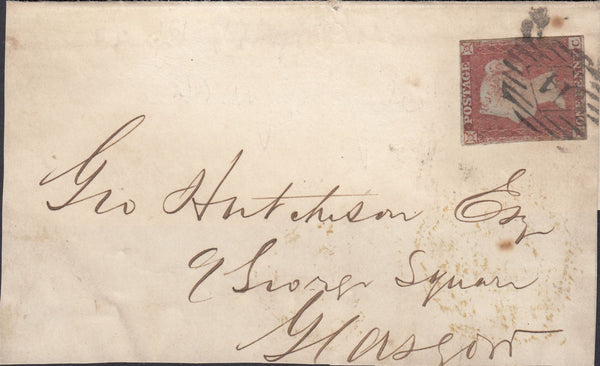 POSTAGE
ONE PENNY
C
Geo Hutchison Esq
9 George Square
Glasgow